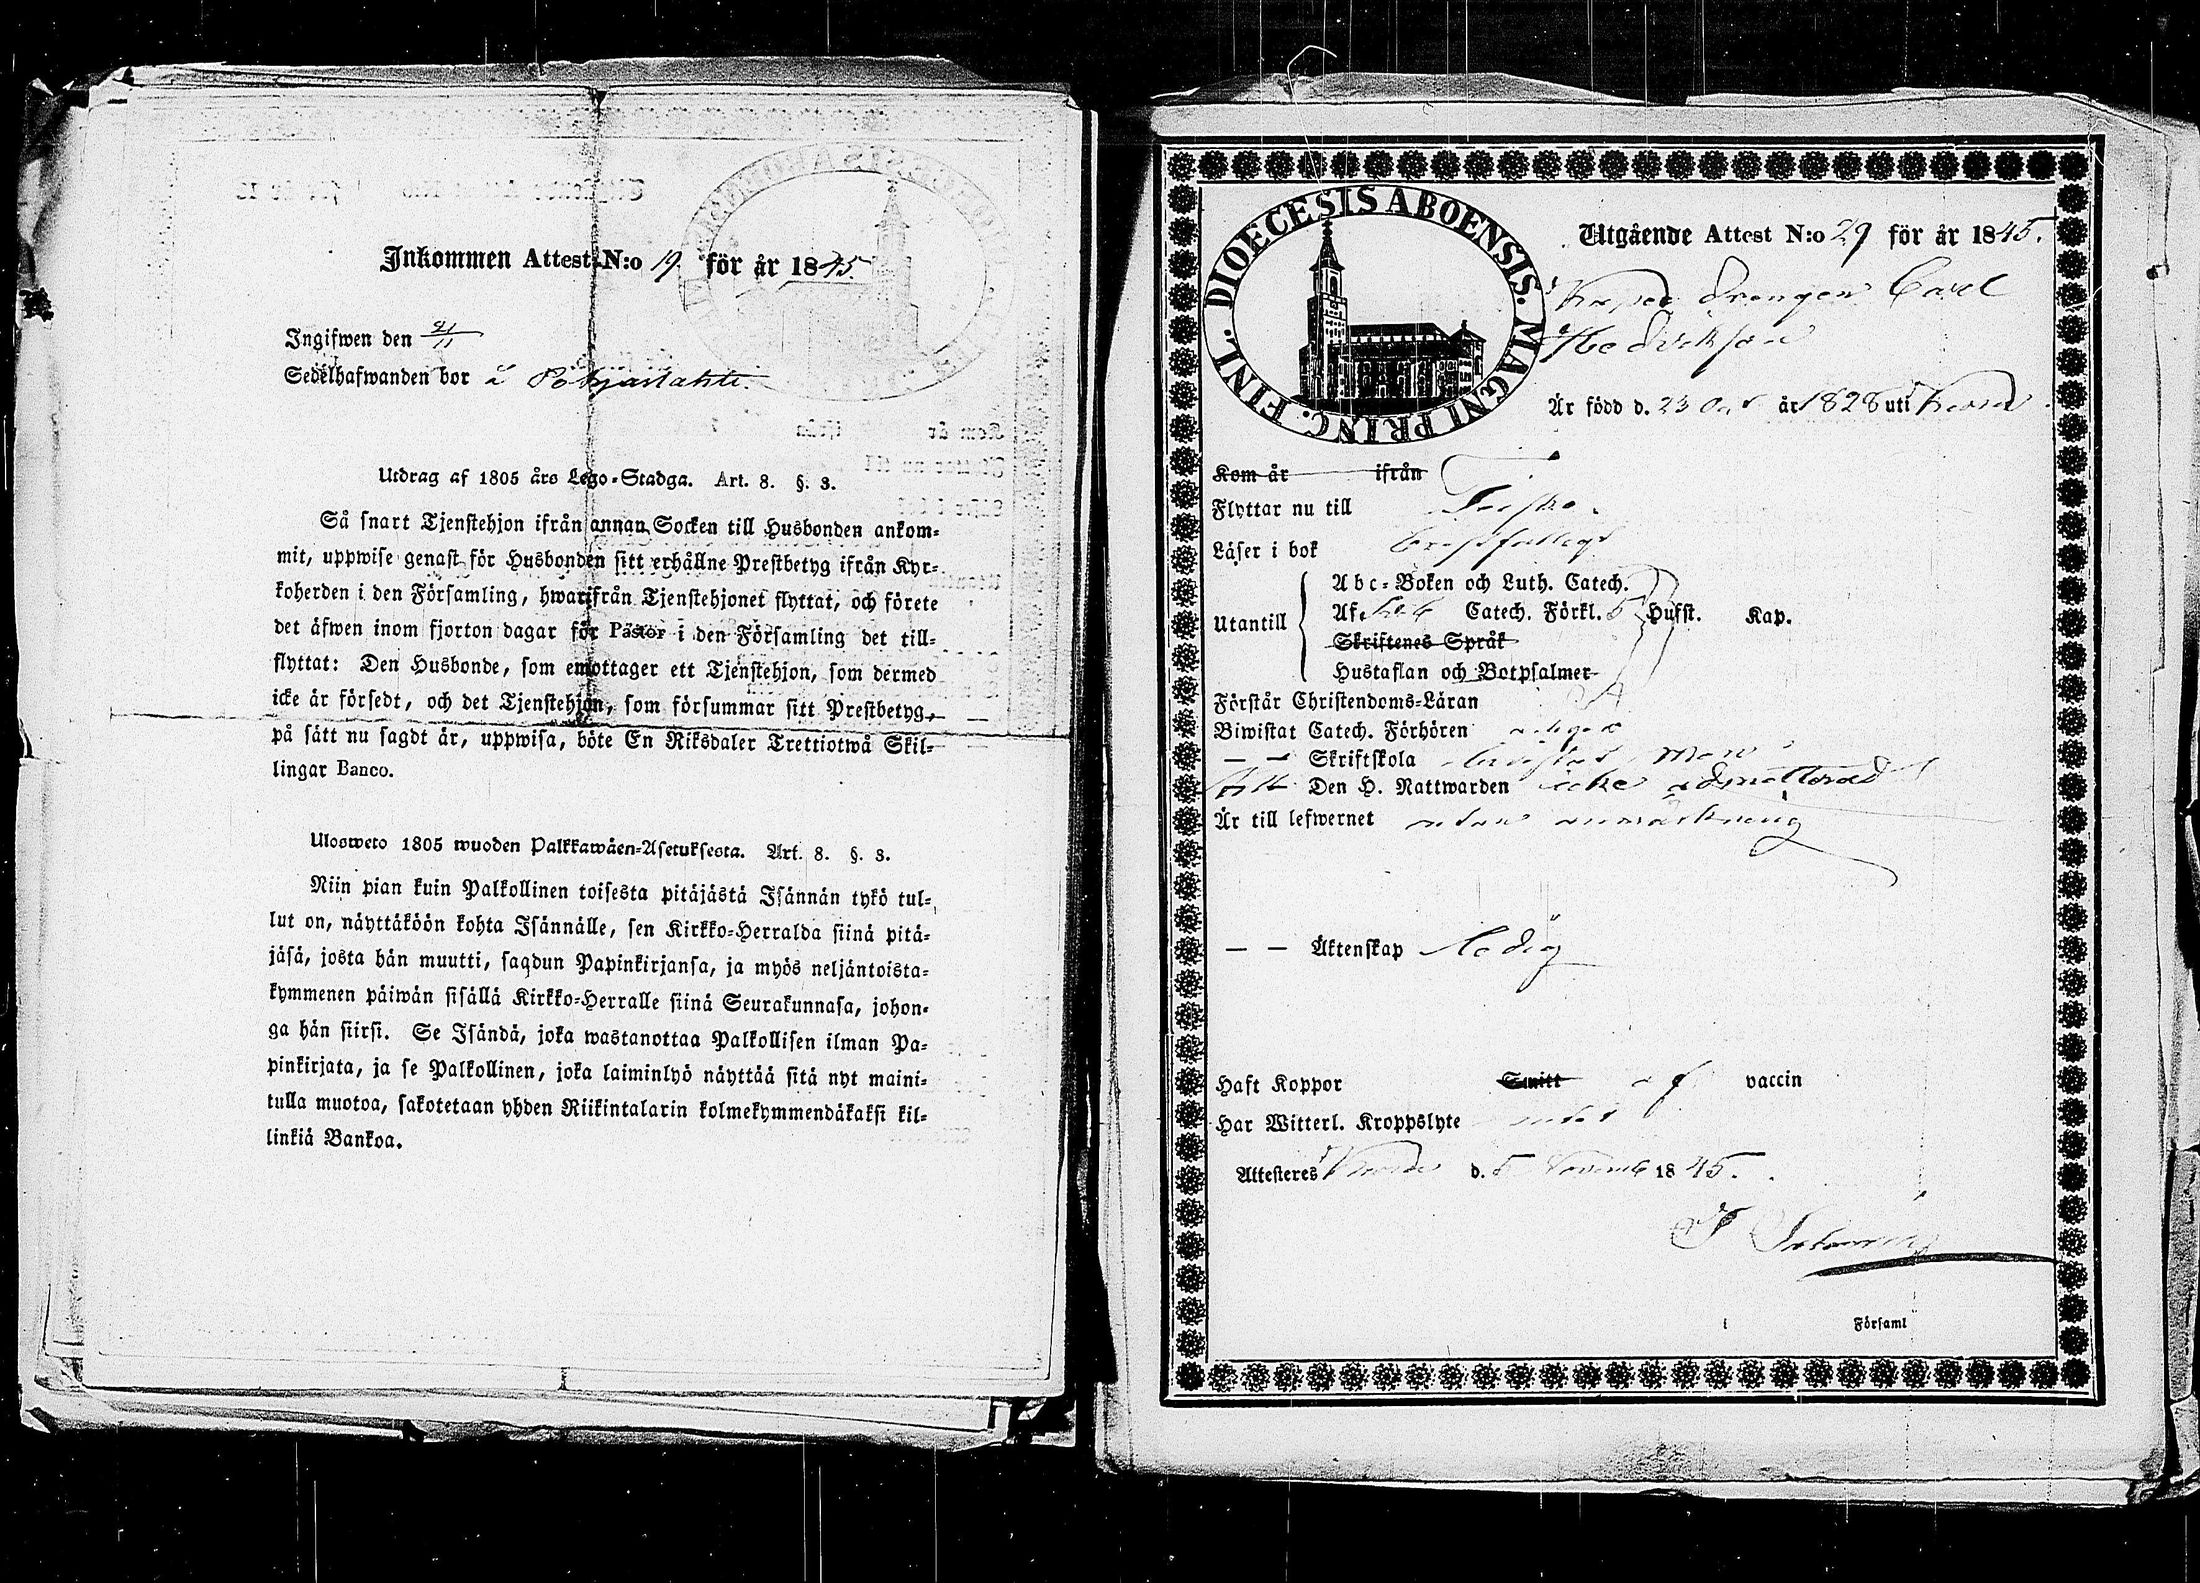 Inkommen Attest N:o 19 för år 1845.
Ingifwen den 21/11
Sedelhafwanden bor i Pohjaslahti.
Utdrag af 1805 års Lego-Stadga. Art. 8. §. 3.
Så snart Tjenstehjon ifrån annan Socken till Husbonden ankom-
mit, uppwise genast för Husbonden sitt erhållne Prestbetyg ifrån Kyr-
koherden i den Församling, hwarifrån Tjenstehjonet flyttat, och förete
det äfwen inom fjorton dagar för Pastor i den Församling det till-
flyttat: Den Husbonde, som emottager ett Tjenstehjon, som dermed
icke är försedt, och det Tjenstehjon, som försummar sitt Prestbetyg,
på sätt nu sagdt är, uppwisa, böte En Riksdaler Trettiotwå Skil-
lingar Banco.
Ulosweto 1805 wuoden Palkkawäen-Asetuksesta. Art. 8. §. 3.
Niin pian kuin Palkollinen toisesta pitäjästä Isännän tykö tul-
lut on, näyttäköön kohta Isännälle, sen Kirkko-Herralda siinä pitä-
jäsä, josta hän muutti, saadun Papinkirjansa, ja myös neljäntoista-
kymmenen päiwän sisällä Kirkko-Herralle siinä Seurakunnasa, johon-
ga hän siirsi. Se Isändä, joka wastanottaa Palkollisen ilman Pa-
pinkirjata, ja se Palkollinen, joka laiminlyö näyttää sitä nyt maini-
tulla muotoa, sakotetaan yhden Riikintalarin kolmekymmendäkaksi kil-
linkiä Bankoa.
DIOECESIS ABOENSIS. MAGNI PRINC. FINL.
Utgående Attest N:o 29 för år 1845.
Drengen Carl
Hedrikson
Är född d. 23 Oct år 1828 uti
Kom år ifrån
Flyttar nu till
Läser i bok
Utantill
Abc-Boken och Luth. Catech.
Af Catech. Förkl. 5 Hufst. Kap.
Skriftenes Språk
Hustaflan och Botpsalmer
Förstår Christendoms-Läran
Biwistat Catech. Förhören
— — Skriftskola
Den H. Nattwarden icke admitterad
Är till lefwernet utan anmärkning
— — Äktenskap ledig
Haft Koppor Smitt af vaccin
Har Witterl. Kroppslyte intet
Attesteres d. 5 Novemb 1845.
i Församl